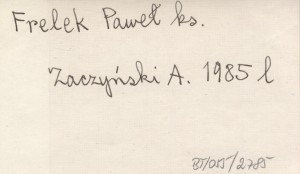 Frelek Paweł ks.
Zaczyński A. 1985 l
BT/055/2785